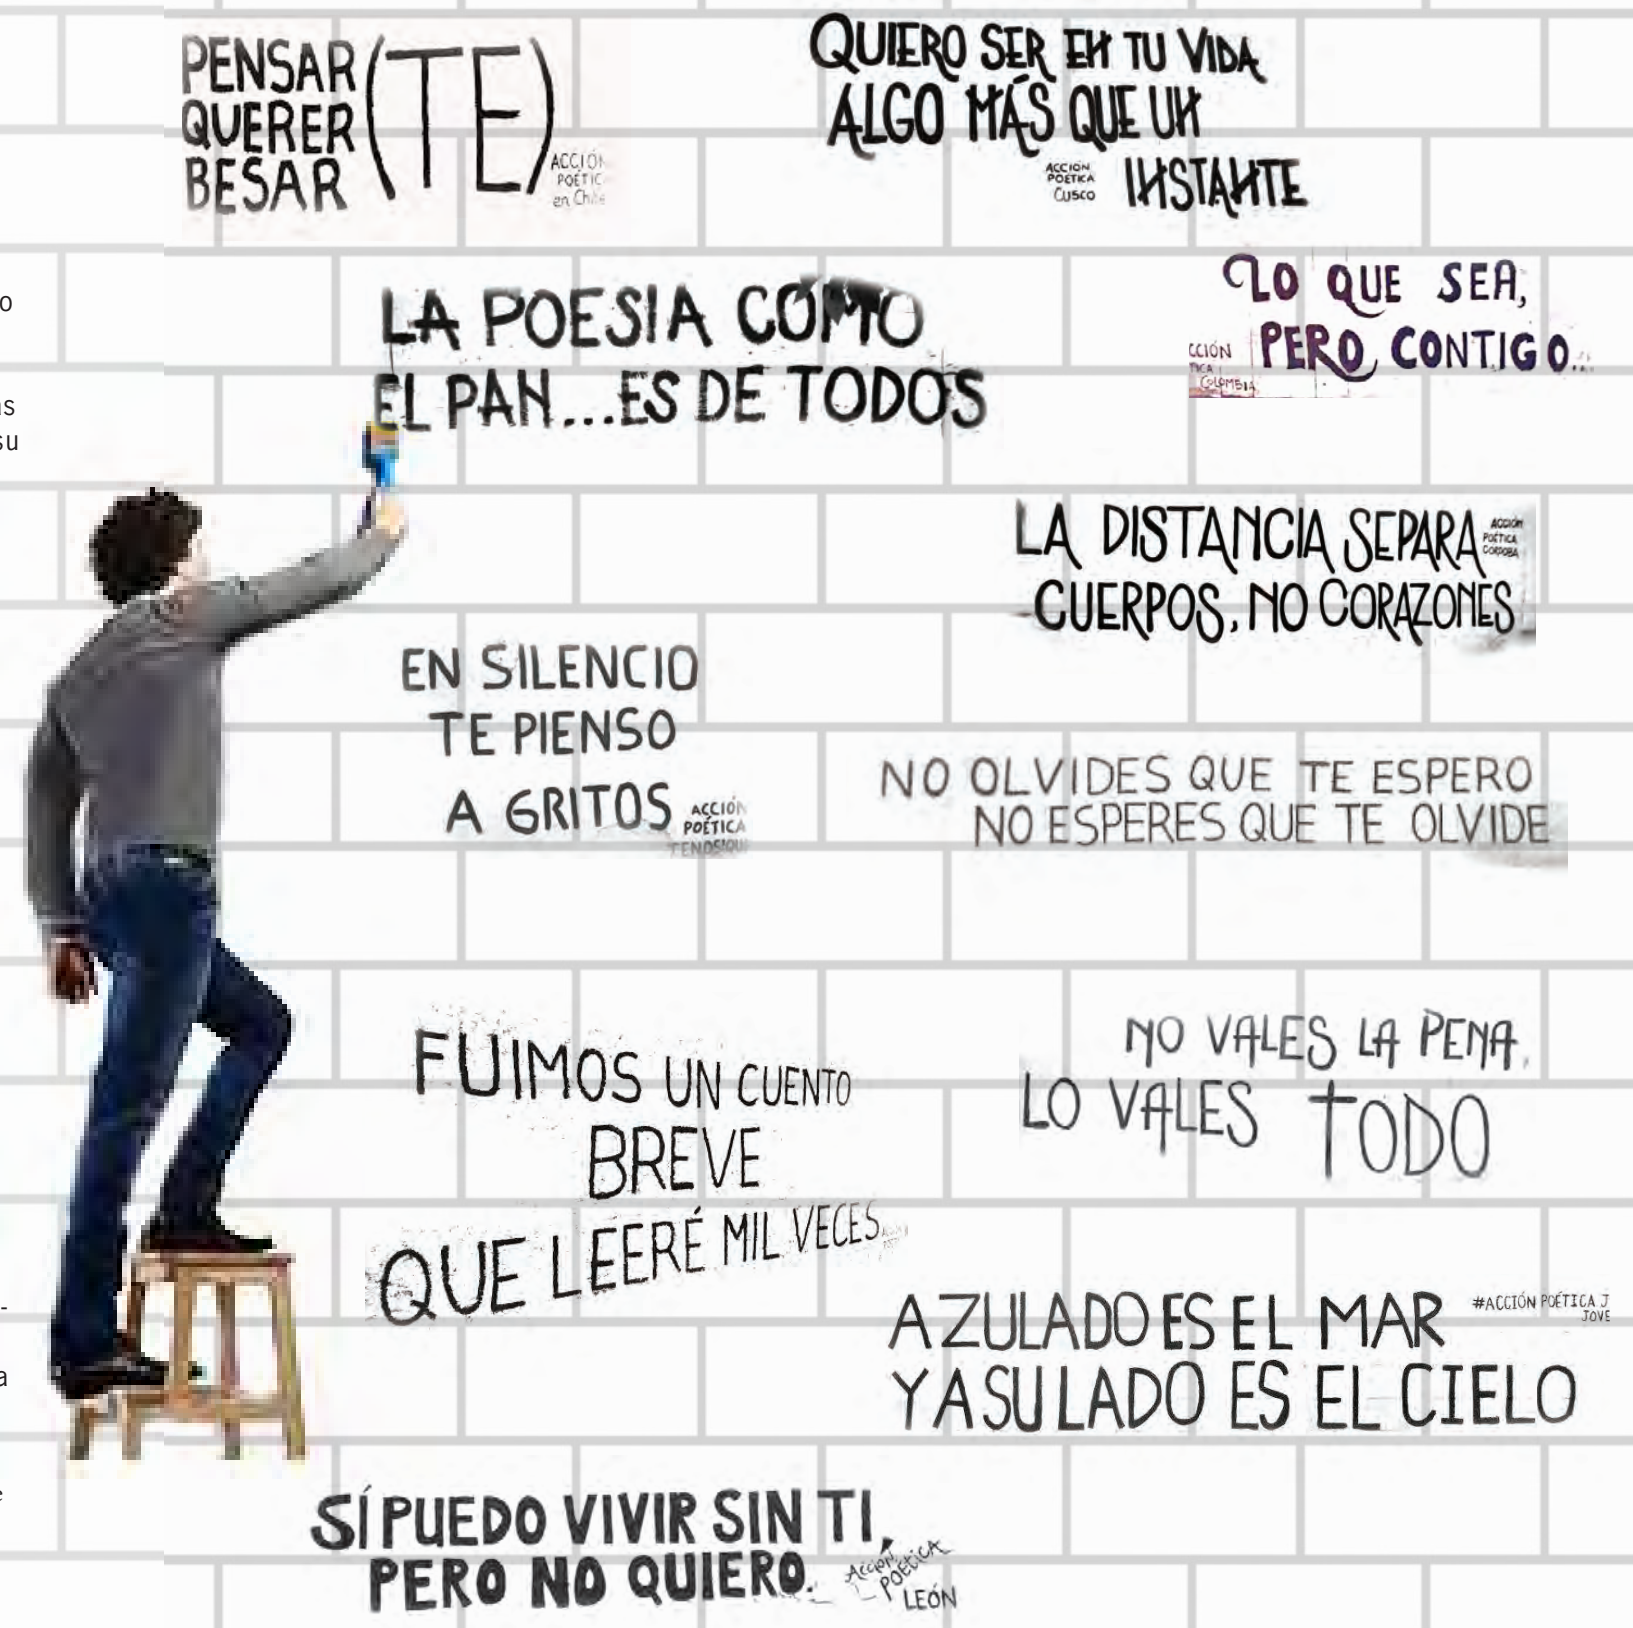 PENSAR
QUERER
BESAR
(TE)
ACCIÓN
POÉTIC
en Chile
QUIERO SER EN TU VIDA
ALGO MÁS QUE UN
INSTANTE
ACCION
POETICA
CUSCO
LO QUE SEA,
PERO CONTIGO...
CCIÓN
TICA
COLOMBIA
LA POESIA COMO
EL PAN...ES DE TODOS
o
as
su
LA DISTANCIA SEPARA
CUERPOS, NO CORAZONES
ACCIÓN
POÉTICA
CORDOBA
EN SILENCIO
TE PIENSO
A GRITOS
ACCIÓN
POÉTICA
NO OLVIDES QUE TE ESPERO
NO ESPERES QUE TE OLVIDE
FUIMOS UN CUENTO
BREVE
QUE LEERÉ MIL VECES
NO VALES LA PENA,
LO VALES TODO
AZULADO ES EL MAR
Y ASULADO ES EL CIELO
#ACCIÓN POÉTICA J
JOVE
-
a
e
SÍ PUEDO VIVIR SIN TI,
PERO NO QUIERO.
ACCIÓN
POÉTICA
LEÓN